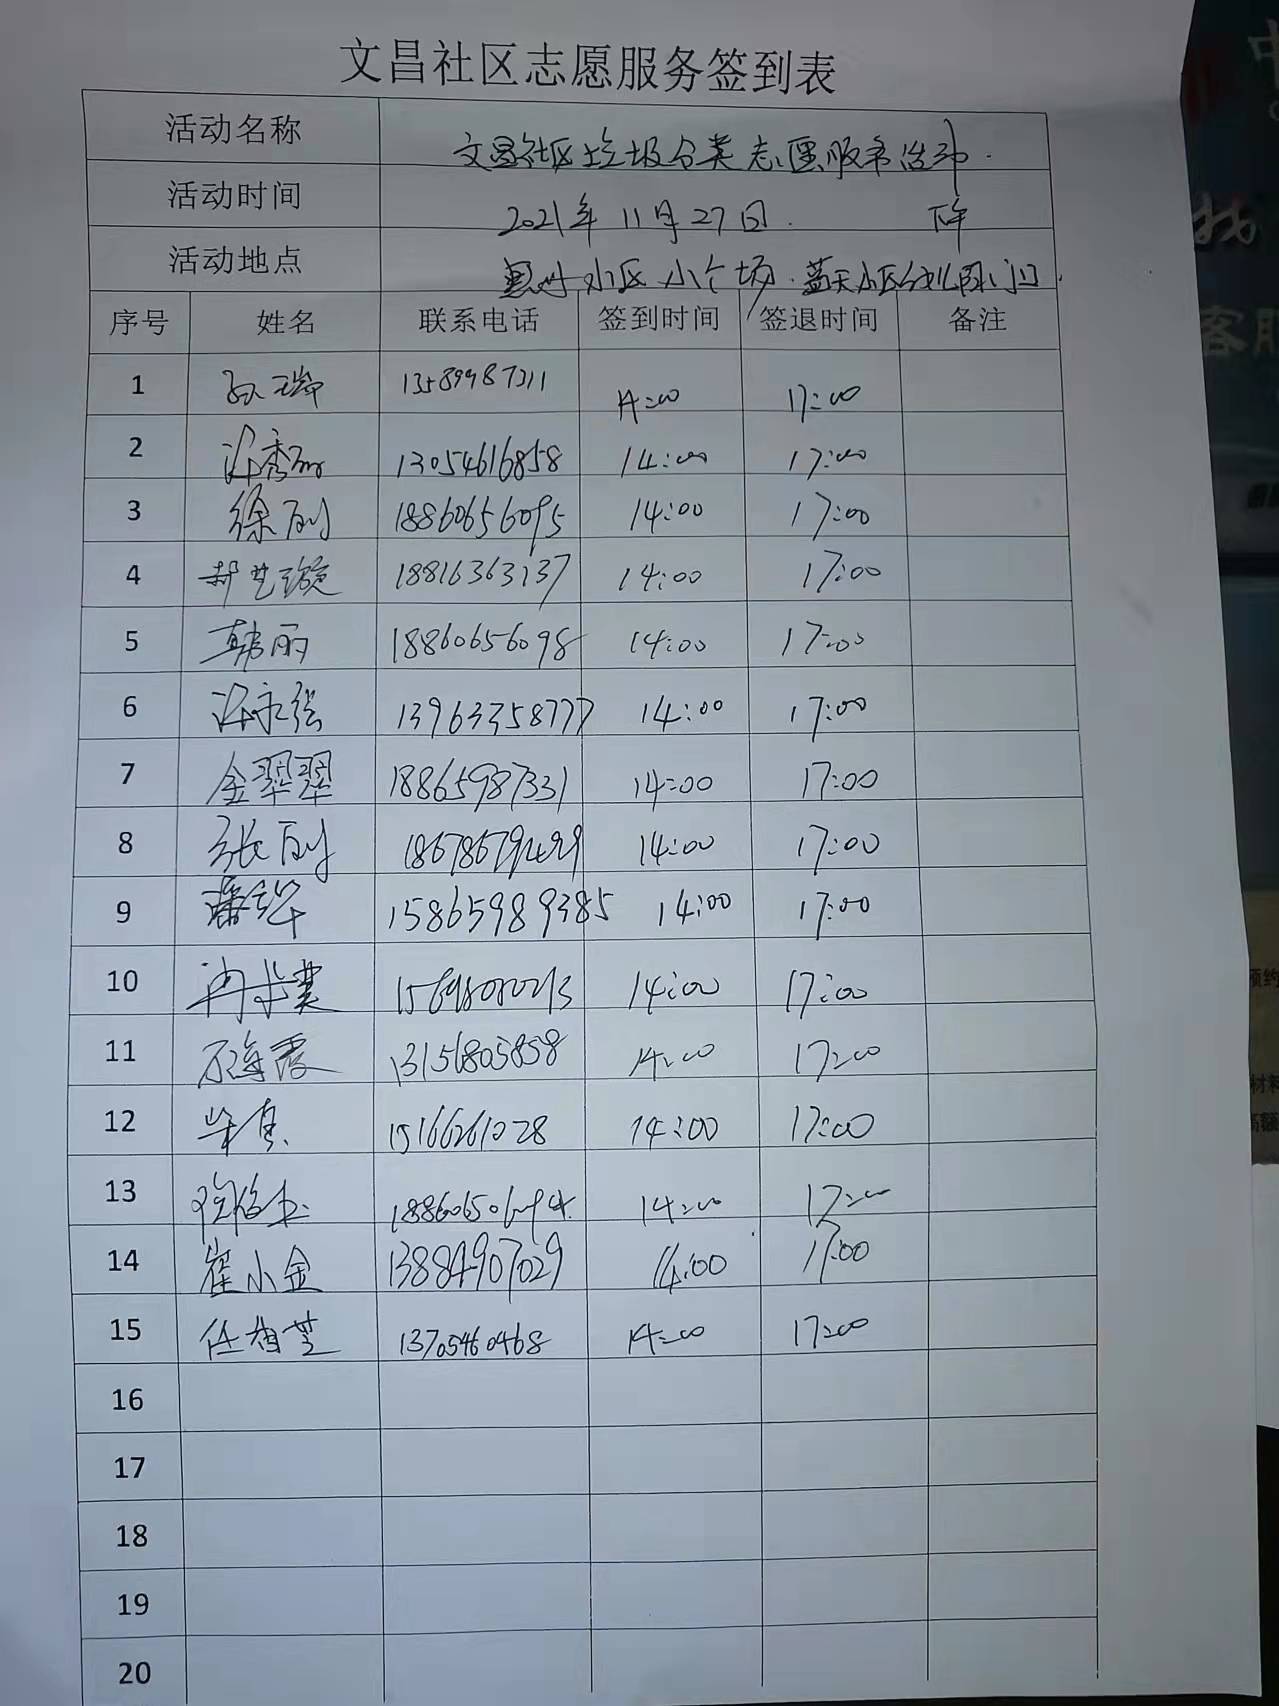 文昌社区志愿服务签到表
活动名称 文昌社区垃圾分类志愿服务活动.
活动时间 2021年11月27日. 下午
活动地点 小区小广场.蓝天小区幼儿园门口.
序号 姓名 联系电话 签到时间 签退时间 备注
1 孙瑞 13589987311 14:00 17:00
2 许秀丽 13054616858 14:00 17:00
3 徐刚 18860656095 14:00 17:00
4 郝艺璇 18816363137 14:00 17:00
5 韩丽 18860656098 14:00 17:00
6 许永强 13963358777 14:00 17:00
7 金翠翠 18865987331 14:00 17:00
8 张刚 14:00 17:00
9 15865989385 14:00 17:00
10 14:00 17:00
11 石海霞 13156805858 14:00 17:00
12 15166261028 14:00 17:00
13 14:00 17:00
14 崔小金 13884907029 14:00 17:00
15 任梅芝 13705460468 14:00 17:00
16
17
18
19
20
找
客服
预约